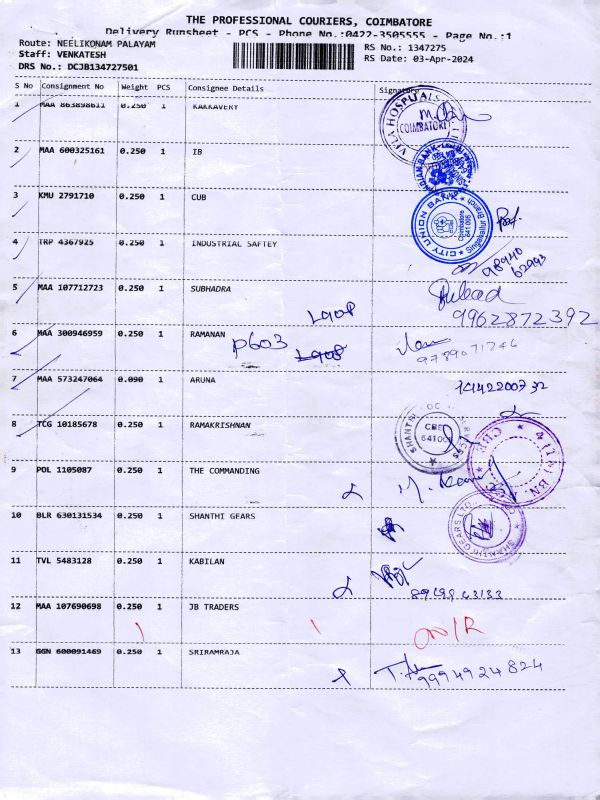 THE PROFESSIONAL COURIERS, COIMBATORE
Delivery Runsheet - PCS - Phone No.:0422-3505555 - Page No.:1
Route: NEELIKONAM PALAYAM
Staff: VENKATESH
DRS No.: DCJB134727501
RS No.: 1347275
RS Date: 03-Apr-2024
S No Consignment No Weight PCS Consignee Details Signature
1 MAA 863898611 0.250 1 KAKKAVERY
COIMBATORE
2 MAA 600325161 0.250 1 IB
INDIAN BANK
3 KMU 2791710 0.250 1 CUB
CITY UNION BANK Singanallur Branch Coimbatore 641 005
4 TRP 4367925 0.250 1 INDUSTRIAL SAFTEY
98940
62993
5 MAA 107712723 0.250 1 SUBHADRA
9962872392
6 MAA 300946959 0.250 1 RAMANAN
P603
9789071246
7 MAA 573247064 0.090 1 ARUNA
8 TCG 10185678 0.250 1 RAMAKRISHNAN
SHANTHI CBE
9 POL 1105087 0.250 1 THE COMMANDING
10 BLR 630131534 0.250 1 SHANTHI GEARS
SHANTHI GEARS LTD
11 TVL 5483128 0.250 1 KABILAN
12 MAA 107690698 0.250 1 JB TRADERS
13 GGN 600091469 0.250 1 SRIRAMRAJA
9994924824